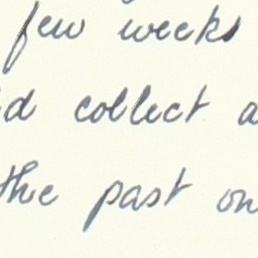 few weeks
d collect a
the past on